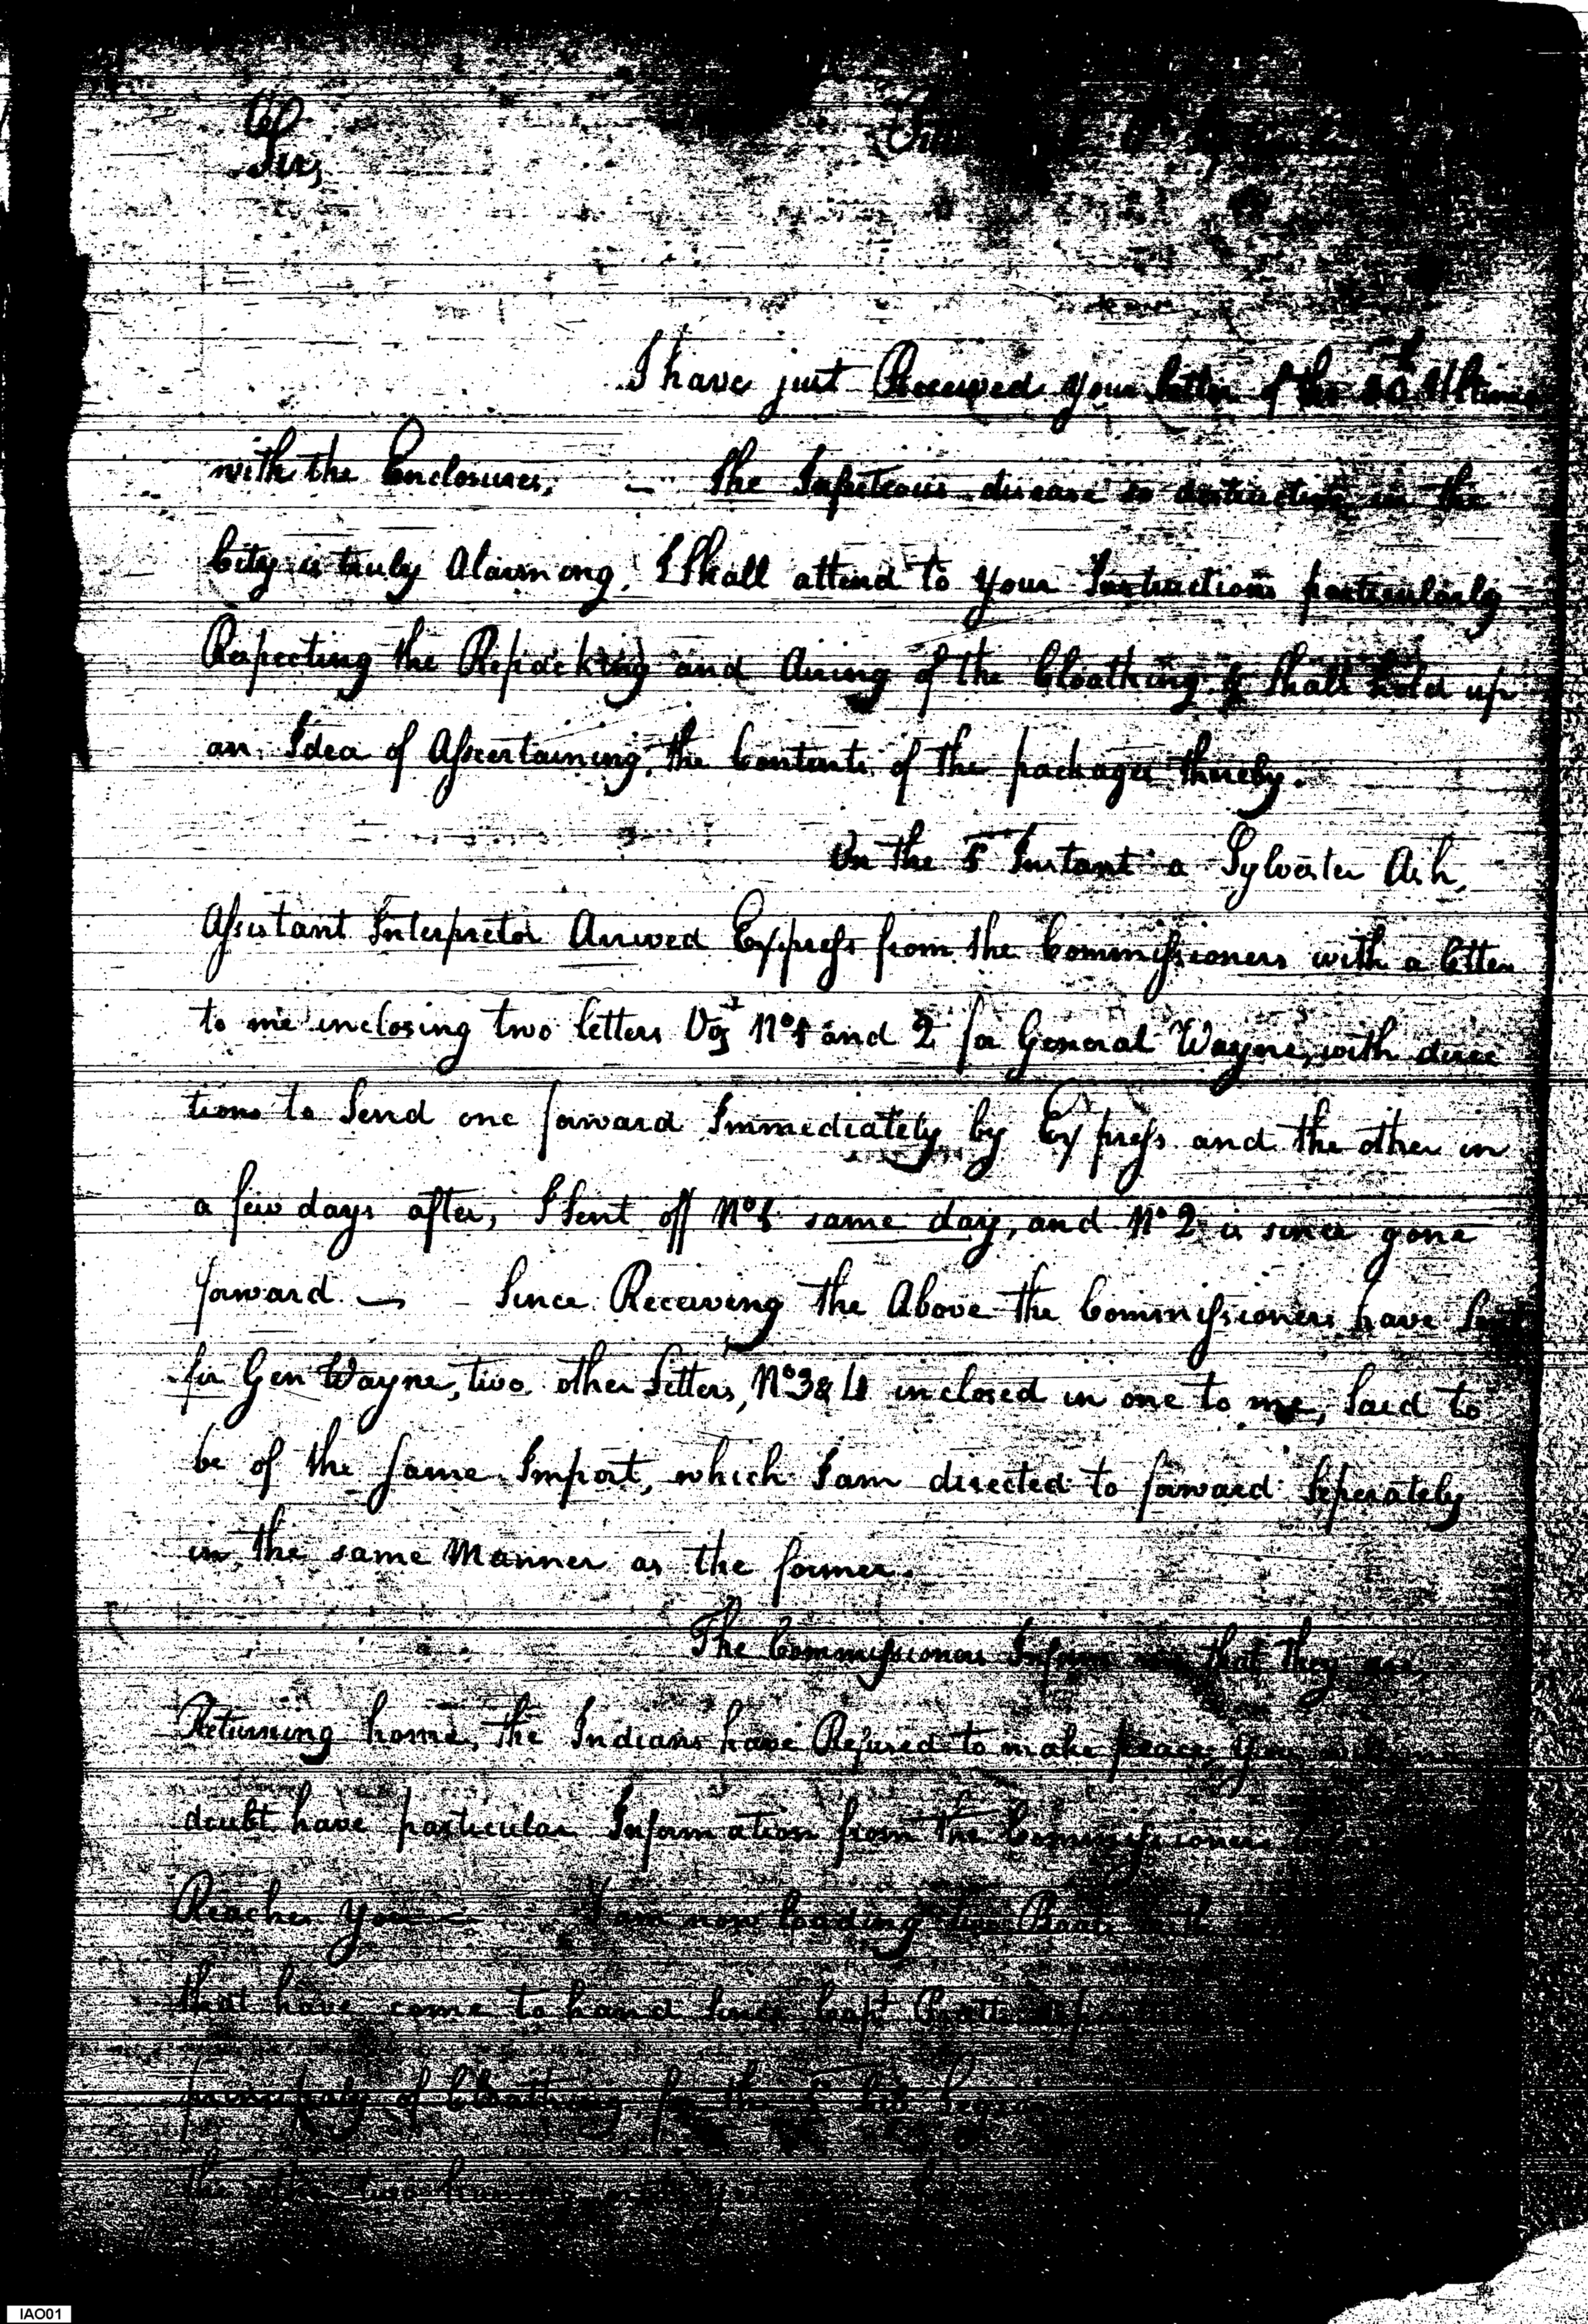 Sir,
I have just Received your letter of the 30th Ultimo
with the Enclosures, — The Infecteous disease so destructive in the
City is truly Alarming, I Shall attend to your Instructions particularly
Respecting the Repacking and Airing of the Cloathing & Shall hold up
an Idea of Assertaining the Contents of the packages thereby.
On the 5 Instant a Sylvester Ash,
Assistant Interpretor Arrived Express from the Commissioners with a letter
to me inclosing two letters Vizt No 1 and 2 for General Wayne, with direc
tions to Send one forward Immediately by Express and the other in
a few days after, I Sent off No 1 same day, and No 2 is since gone
forward — Since Receiving the Above the Commissioners have Sent
for Gen Wayne, two other Letters, No 3 & 4 inclosed in one to me, Said to
be of the Same Import, which I am directed to forward Seperately
in the same Manner as the former.
The Commissioners Inform me that they are
Returning home, the Indians have Refused to make peace, You
doubt have particular Information from the Commissioners
Reaches you — I am now loading two Boats
that have come to hand Since Capt
principaly of Cloathing for the
the other two
IAO01